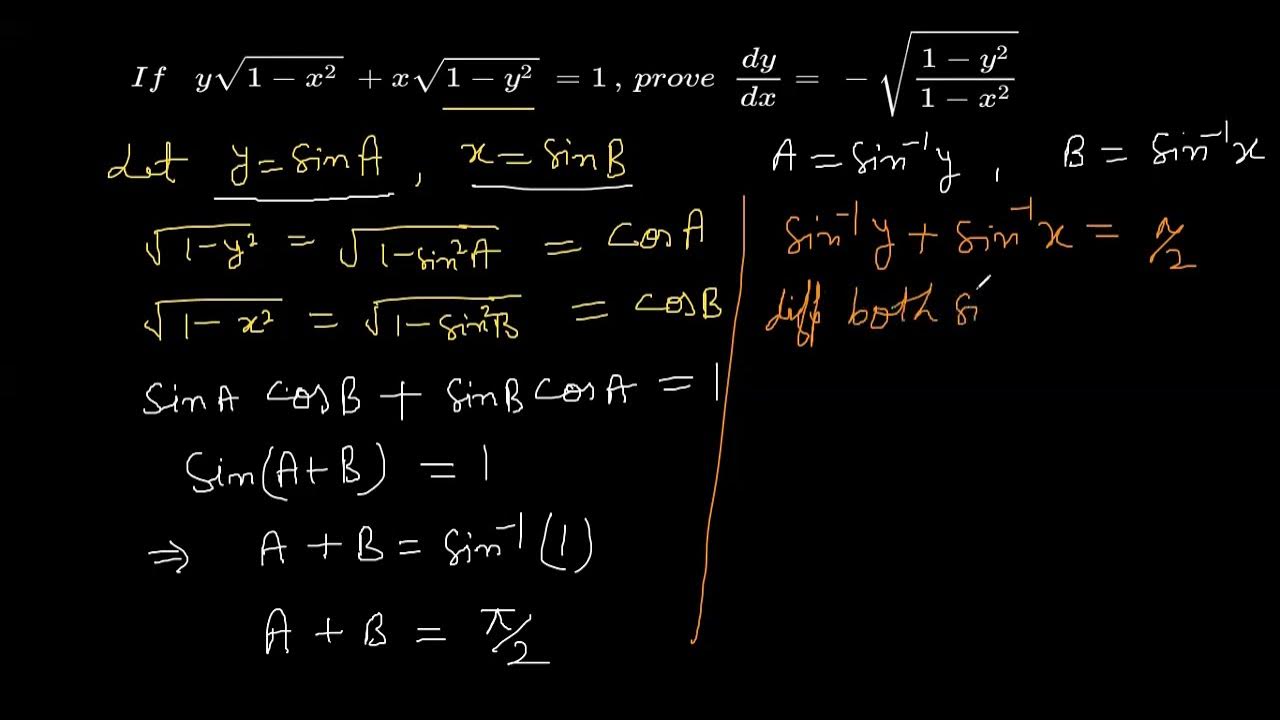 If y√(1 − x²) + x√(1 − y²) = 1, prove dy/dx = −√((1 − y²)/(1 − x²))
Let y = sinA, x = sinB
√(1 − y²) = √(1 − sin²A) = cosA
√(1 − x²) = √(1 − sin²B) = cosB
sinA cosB + sinB cosA = 1
Sin(A+B) = 1
⇒ A + B = sin⁻¹(1)
A + B = π/2
A = sin⁻¹y, B = sin⁻¹x
sin⁻¹y + sin⁻¹x = π/2
diff both si